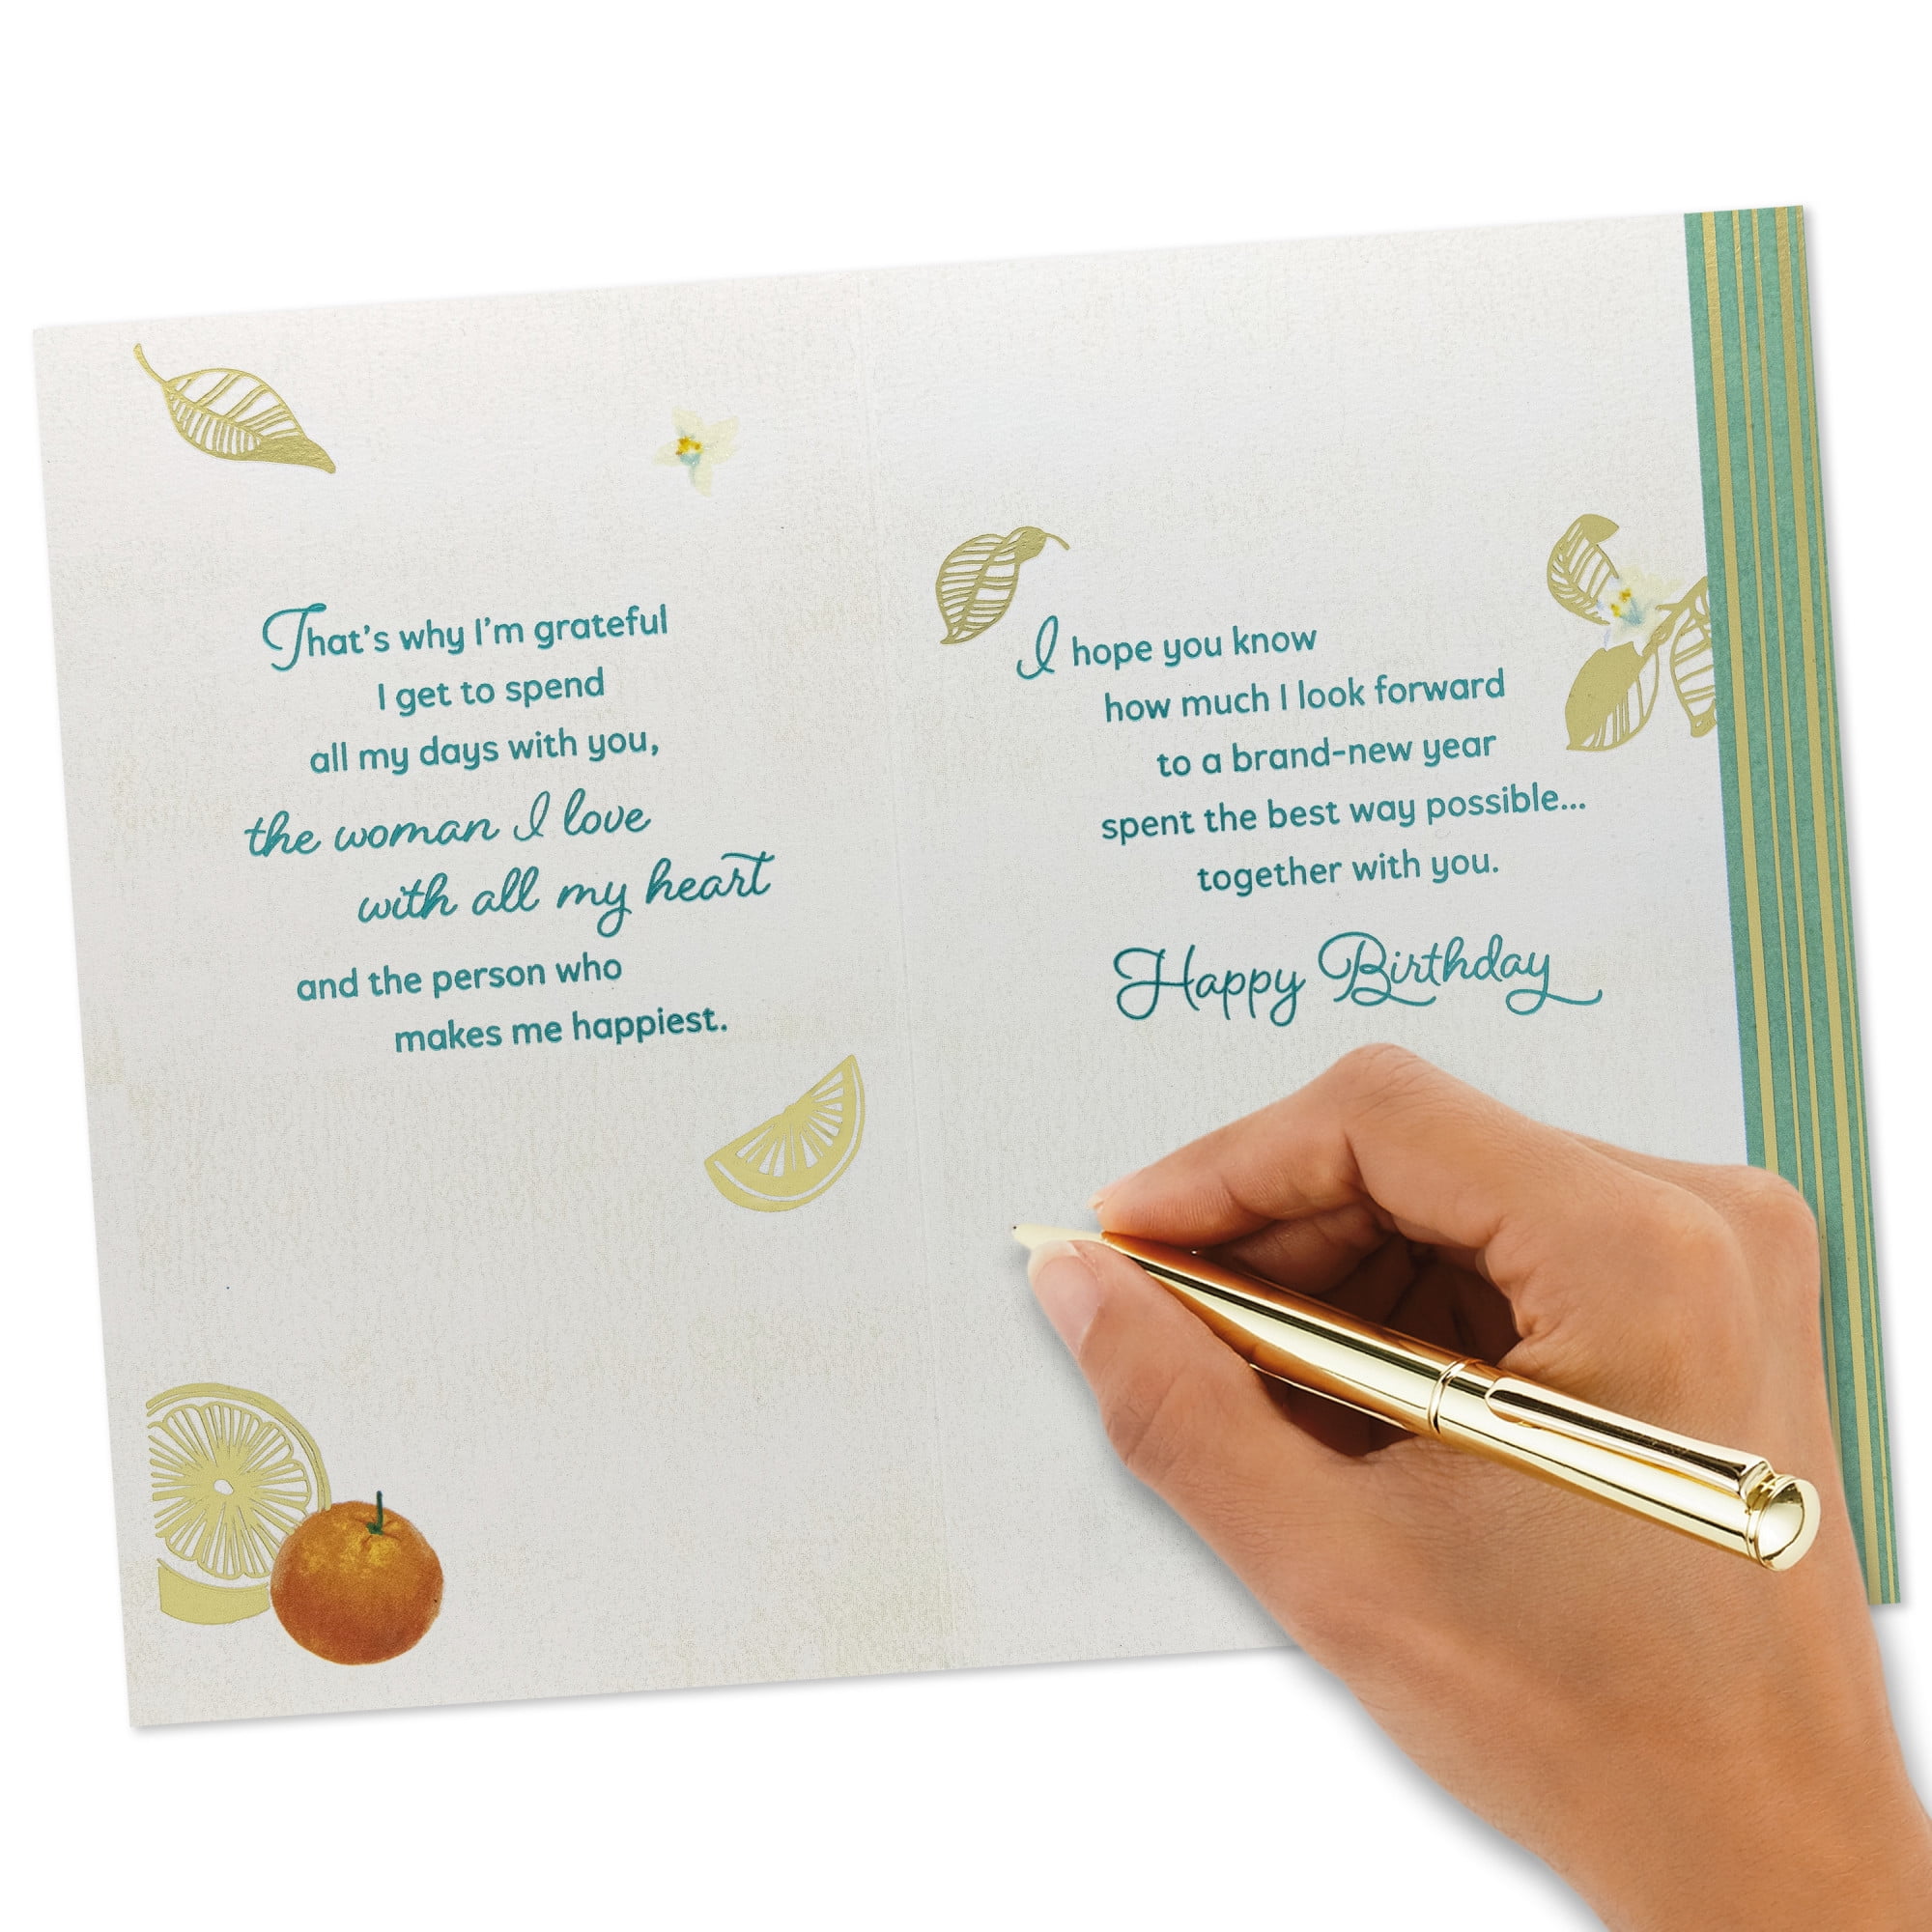 That's why I'm grateful
I get to spend
all my days with you,
the woman I love
with all my heart
and the person who
makes me happiest.
I hope you know
how much I look forward
to a brand-new year
spent the best way possible...
together with you.
Happy Birthday